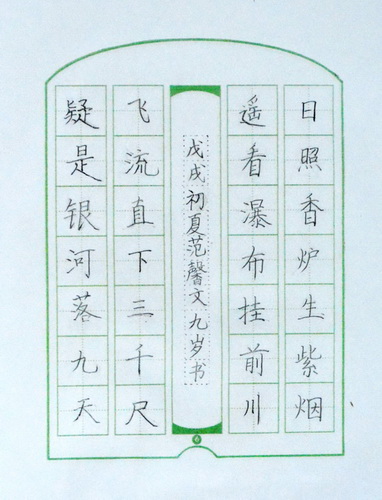 日照香炉生紫烟
遥看瀑布挂前川
戊戌初夏范馨文九岁书
飞流直下三千尺
疑是银河落九天